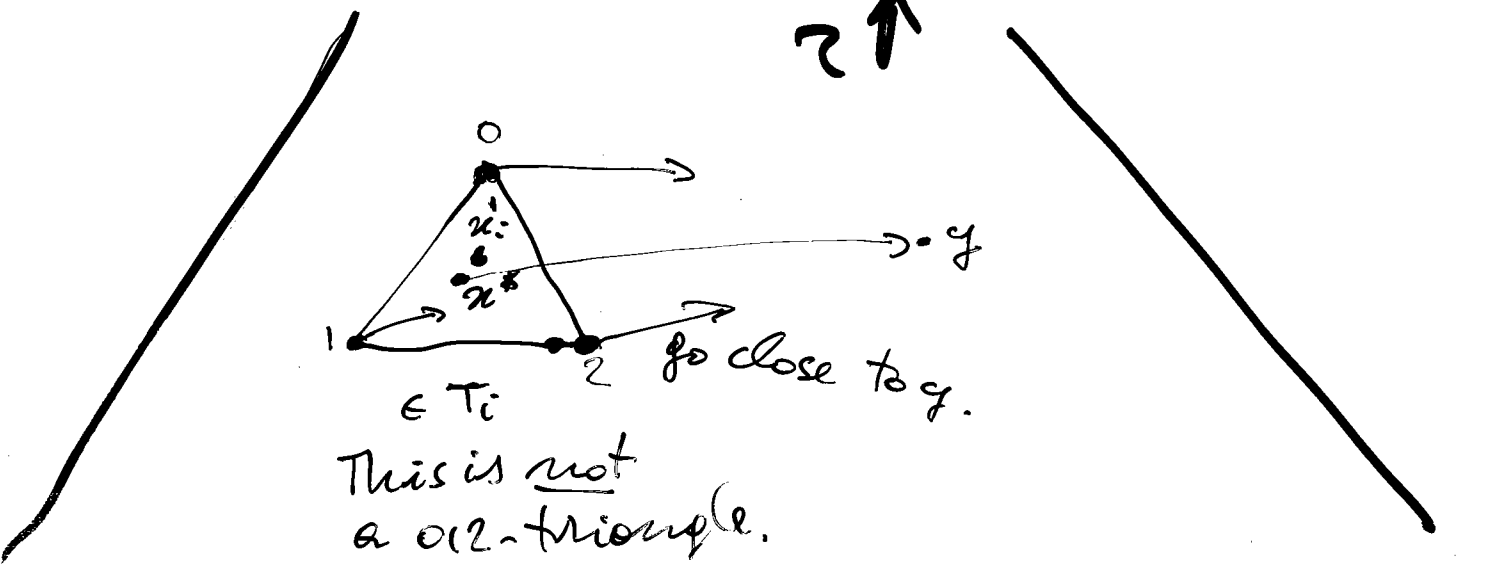 0
x_i
x*
y
1
2
go close to y.
∈ T_i
This is not
a 012-triangle.